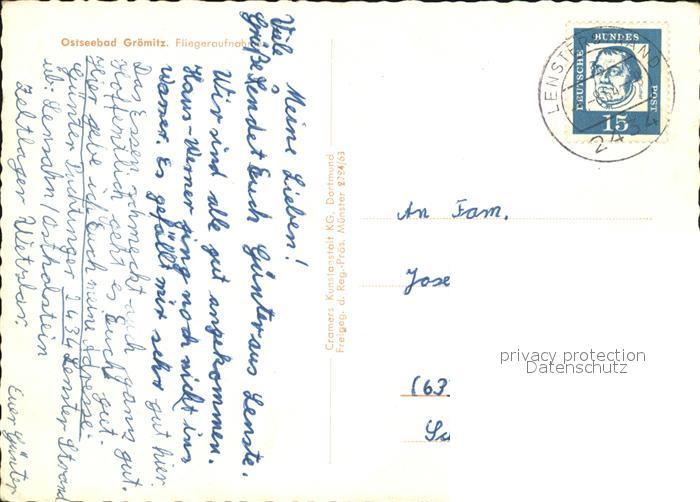 Ostseebad Grömitz. Fliegeraufnahme
Meine Lieben!
Viele
Grüße sendet Euch Günter aus Lenste.
Wir sind alle gut angekommen.
Hans-Werner ging noch nicht ins
Wasser. Es gefällt mir sehr gut hier.
Das Essen schmeckt auch ganz gut.
Hoffentlich geht es Euch gut.
Hier gebe ich Euch meine Adresse:
Günter 2434 Lenster Strand
üb. Lensahn/Ostholstein
Zeltlager Wetzlar
Euer Günter
Cramers Kunstanstalt KG. Dortmund
Freigeg. d. Reg.-Präs. Münster 8794/63
DEUTSCHE BUNDES POST
15
LENSTER STRAND
2434
An Fam.
Jose
(63
privacy protection
Datenschutz